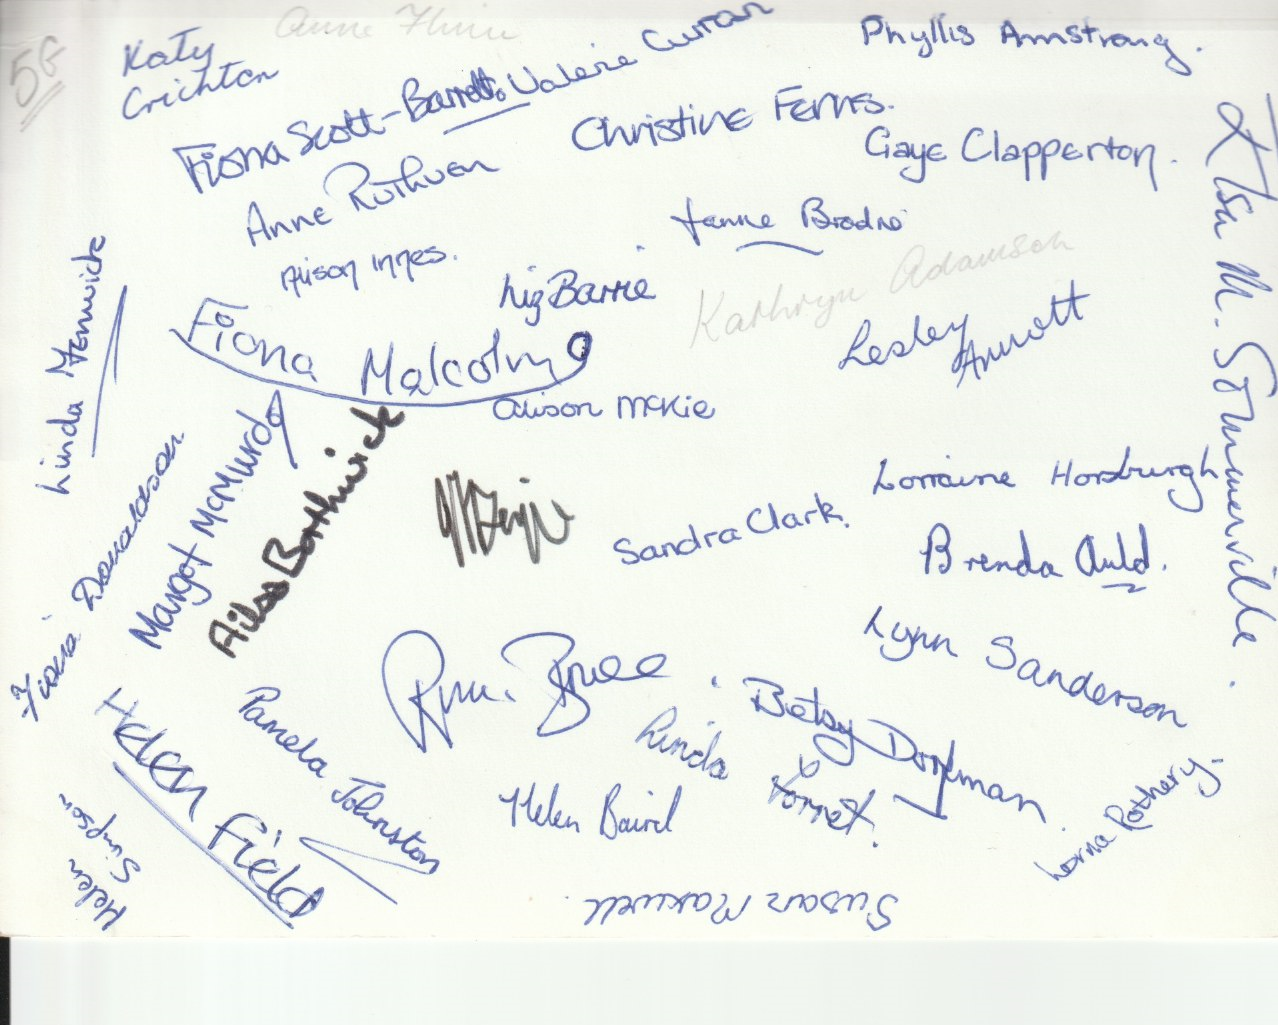 5G
Katy
Crichton
Anne
Fiona Scott-Barrett.
Valerie Curran
Phyllis Armstrong.
Christine Ferns.
Gaye Clapperton.
Anne Ruthven
Alison Innes.
Brodie
Liz Barrie
Kathryn Adamson
Lesley
Arnott
Ailsa M. Sommerville.
Linda Fenwick
Fiona Malcolm
Alison McKie
Fiona Donaldson.
Margot McMurdo
Ailsa Borthwick
Sandra Clark.
Lorraine Horsburgh
Brenda Auld.
Lynn Sanderson
Bruce
Betsy Dorfman.
Linda Forret.
Helen Baird
Pamela Johnston
Helen Field
Helen
Simpson
Lorna Rothery.
Susan Maxwell.